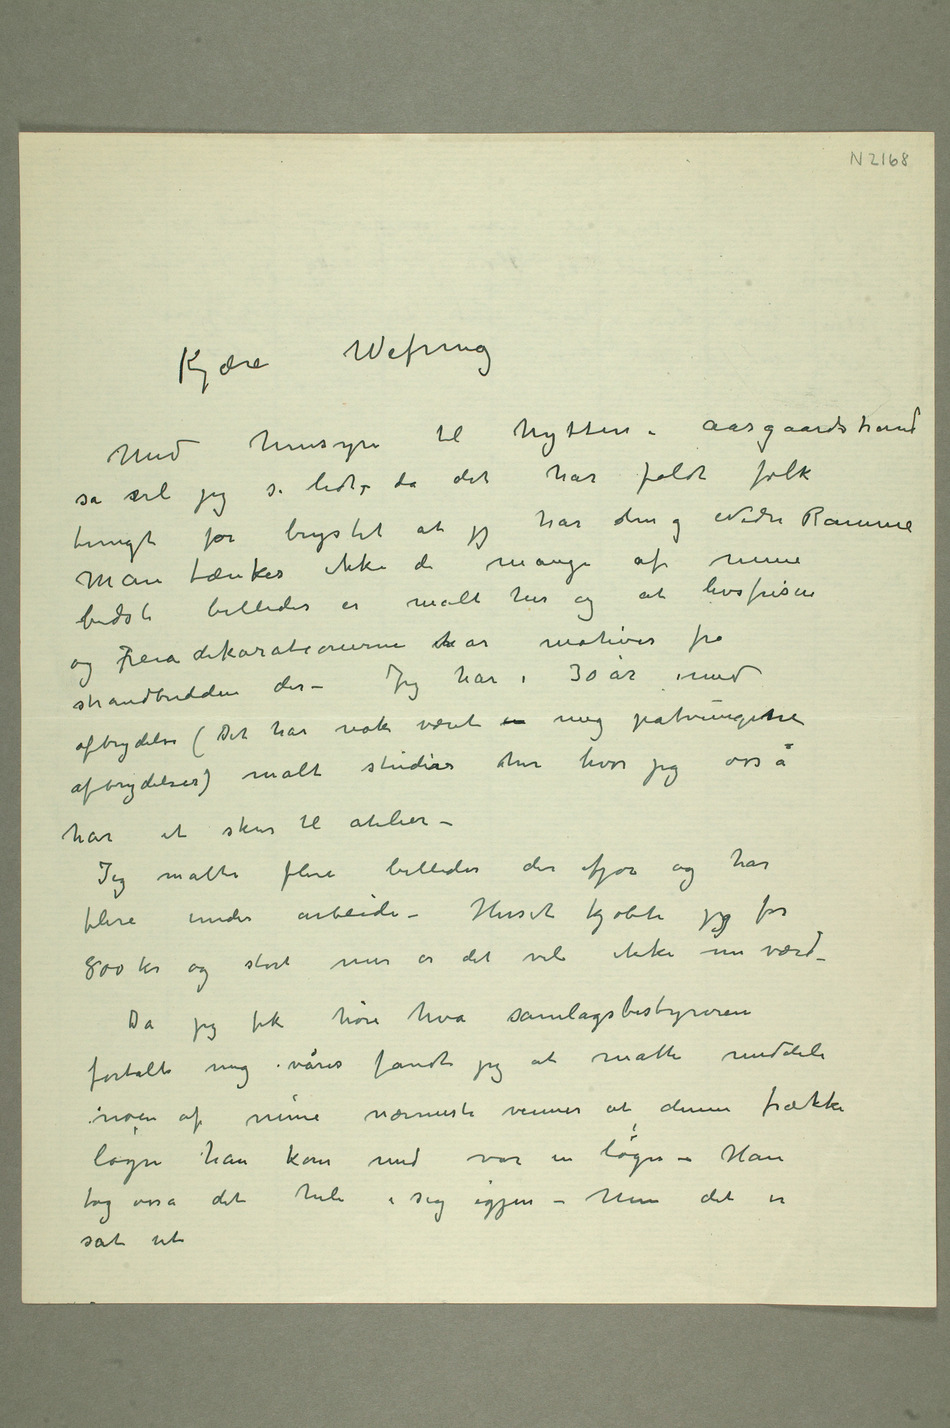 N 2168
Kjære Wefring
Med hensyn til hytten i Aasgaardstrand
sa vil jeg si lidt, da det har faldt folk
tungt for brystet at jeg har den og Nedre Ramme
Man tænker ikke de mange af mine
bedste billeder er malt her og at livsfrisen
og Freiadekorationerne har motiver fra
strandbredden der – Jeg har i 30 år med
afbrydelse (Det har nok været en meg påtvungethe
afbrydelser) malt studier her hvor jeg osså
har et skur til atelier –
Jeg malte flere billeder der ifjor og har
flere under arbeide – Huset kjøbte jeg for
800 kr og stort mer er det vel ikke nu værd –
Da jeg fik høre hva samlagsbestyreren
fortalte meg i våres fandt jeg at måtte meddele
noen af mine nærmeste venner at denne frække
løgn han kom med var en løgn – Han
tog ossa det hele i sig igjen – Men det er
sat ut